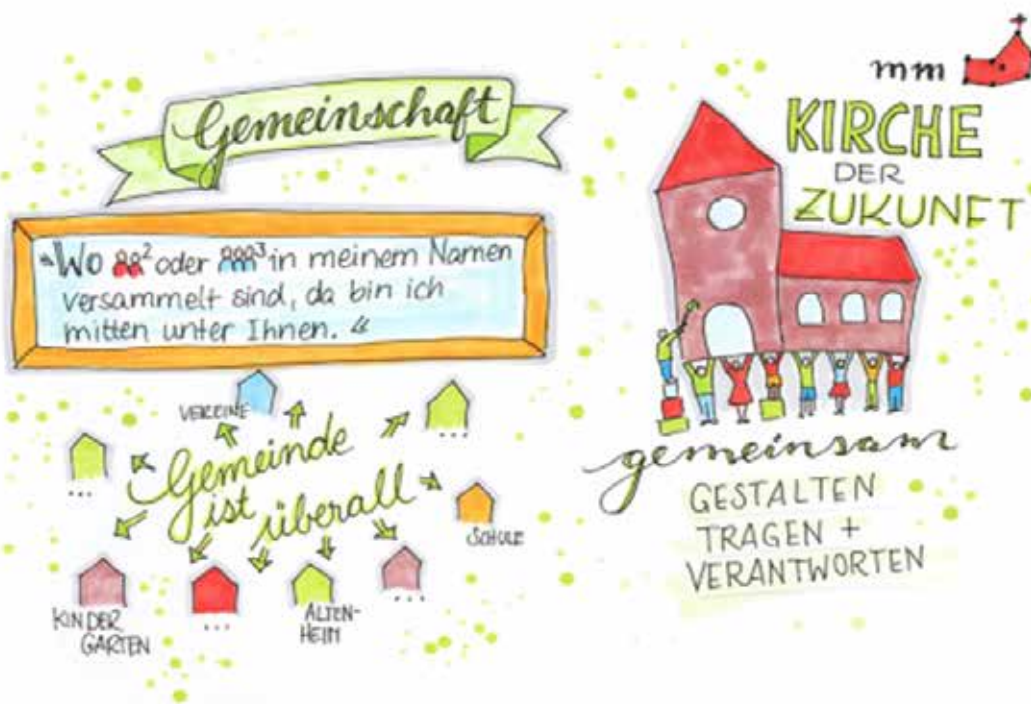 Gemeinschaft
"Wo 2 oder 3 in meinem Namen
versammelt sind, da bin ich
mitten unter Ihnen."
VEREINE
...
...
Gemeinde
ist überall
SCHULE
KINDER
GARTEN
...
ALTEN-
HEIM
...
mm
KIRCHE
DER
ZUKUNFT
gemeinsam
GESTALTEN
TRAGEN +
VERANTWORTEN